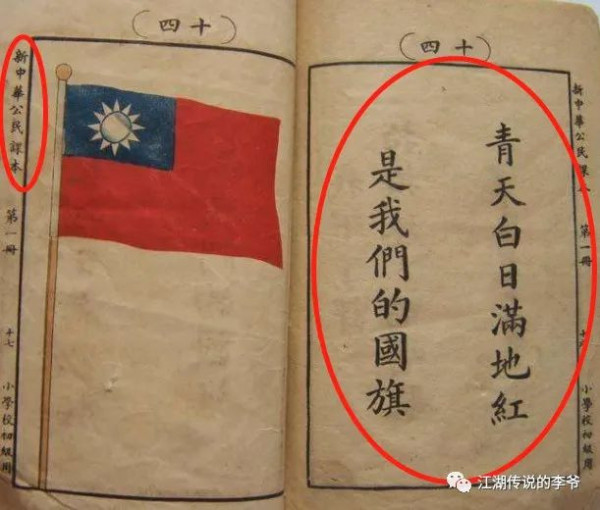 （十四）
新中華公民課本
第一冊
小學校初級用
青天白日滿地紅
是我們的國旗
（十四）
新中華公民課本
第一冊
十七
小學校初級用
江湖传说的李爷